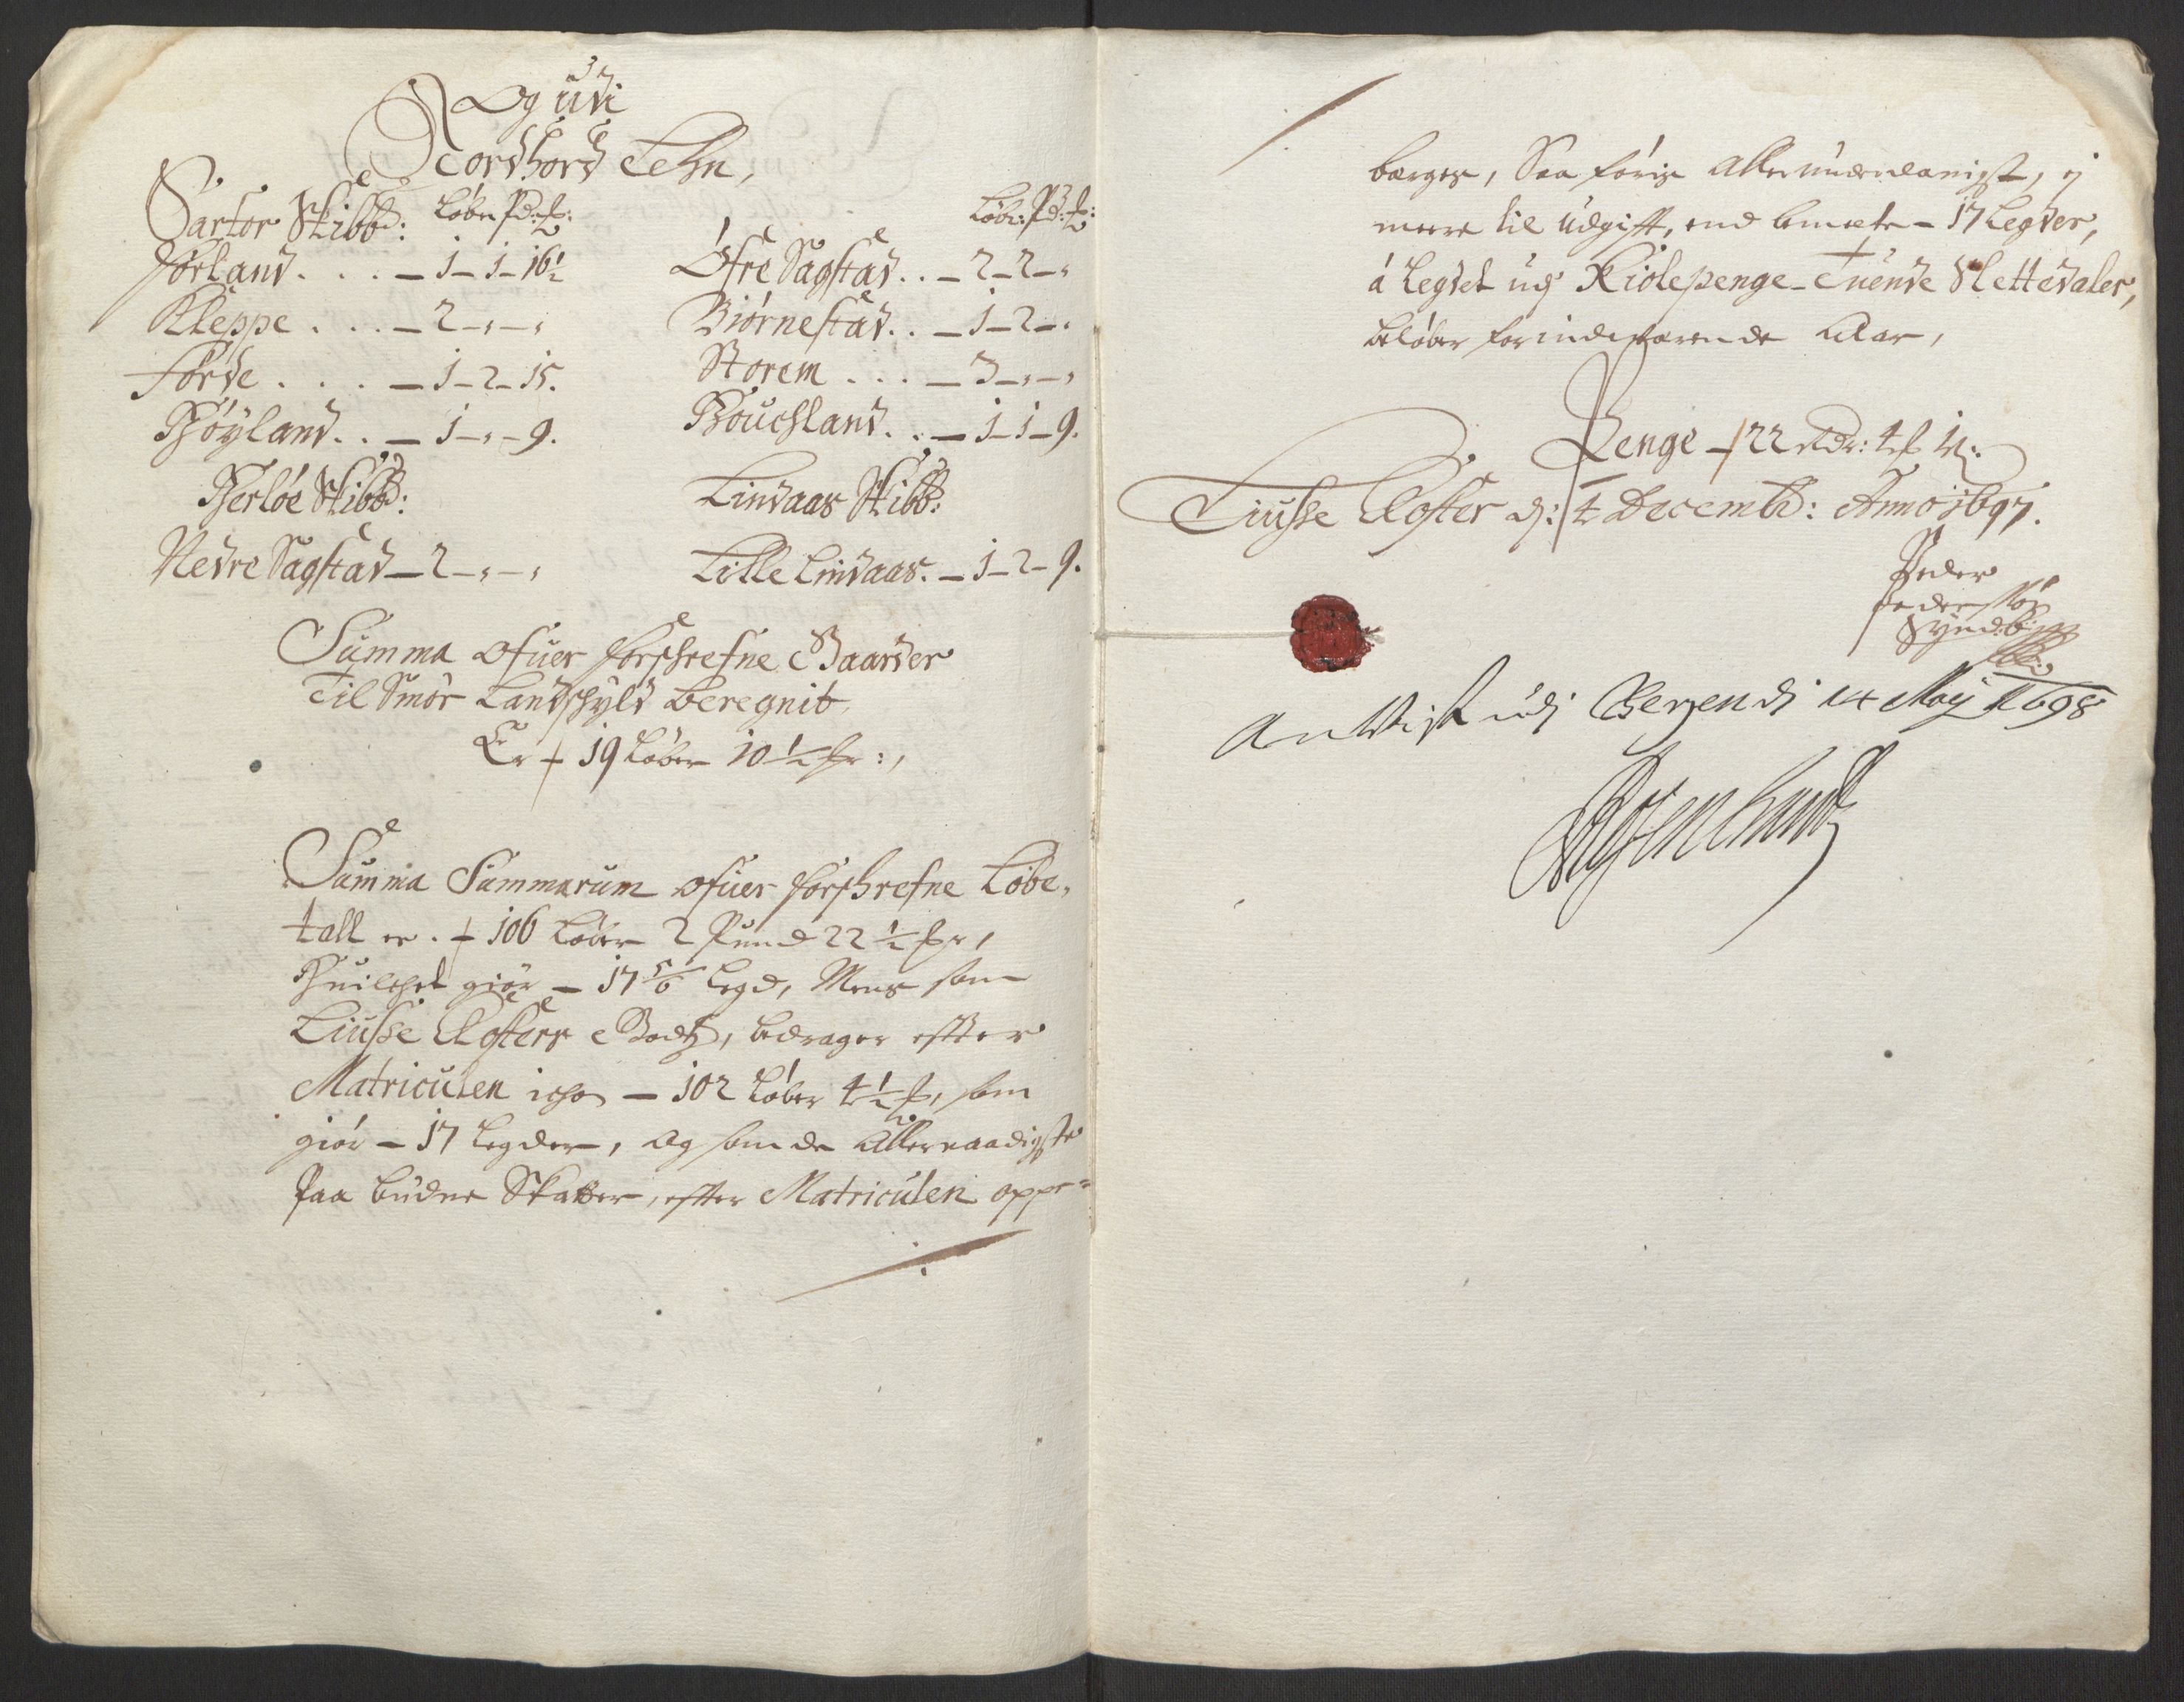 Og udi
Nordhord Lehn,
Sartor Skibbd: Løber Pd: &:
Førland . . . — 1 – 1 – 16½
Kleppe . . . — 2 – , – ,
Førde . . . — 1 – 2 – 15.
Høyland . . — 1 – , – 9.
Herløe Skibbd:
Nedre Sagstad — 2 – , – ,
Løbr: Pd: &:
Øfre Sagstad . . – 2 – 2 – ,
Biørnestad . . – 1 – 2 – ,
Storem . . . – 3 – , – ,
Houchland . . — 1 – 1 – 9.
Lindaas Skibbd:
Lille Lindaas. – 1 – 2 – 9.
Summa ofuer forschrefne Gaarder
Til Smør Landschyld beregnit,
Er 19 Løber 10½ &r:,
Summa Summarum ofuer forschrefne Løbe,
tall er . 106 Løber 2 Pund 22½ &r,
Huilchet giør – 17 5/6 Legd, Mens som
Liusse Closters Godtz, bedrager effter
Matriculen ichon – 102 Løber 4½ &, som
giør – 17 Legder, og som de Allernaadigste
Paa budne Skatter, effter Matriculen oppe=
bærges, Saa føris Allerunderdanigst, ej
meere til Udgifft, end bemelte – 17 Legder,
á Legdet udj Kiolepenge – Tuende Slettedaler,
beløber for indeværende Aar,
Penge – 22 rdr: 4 & 1
Liusse Closter d: 4 Decembr: Anno 1697.
Peder
Pedersøn
Anvist udj Bergen dj 14 Maij 1698